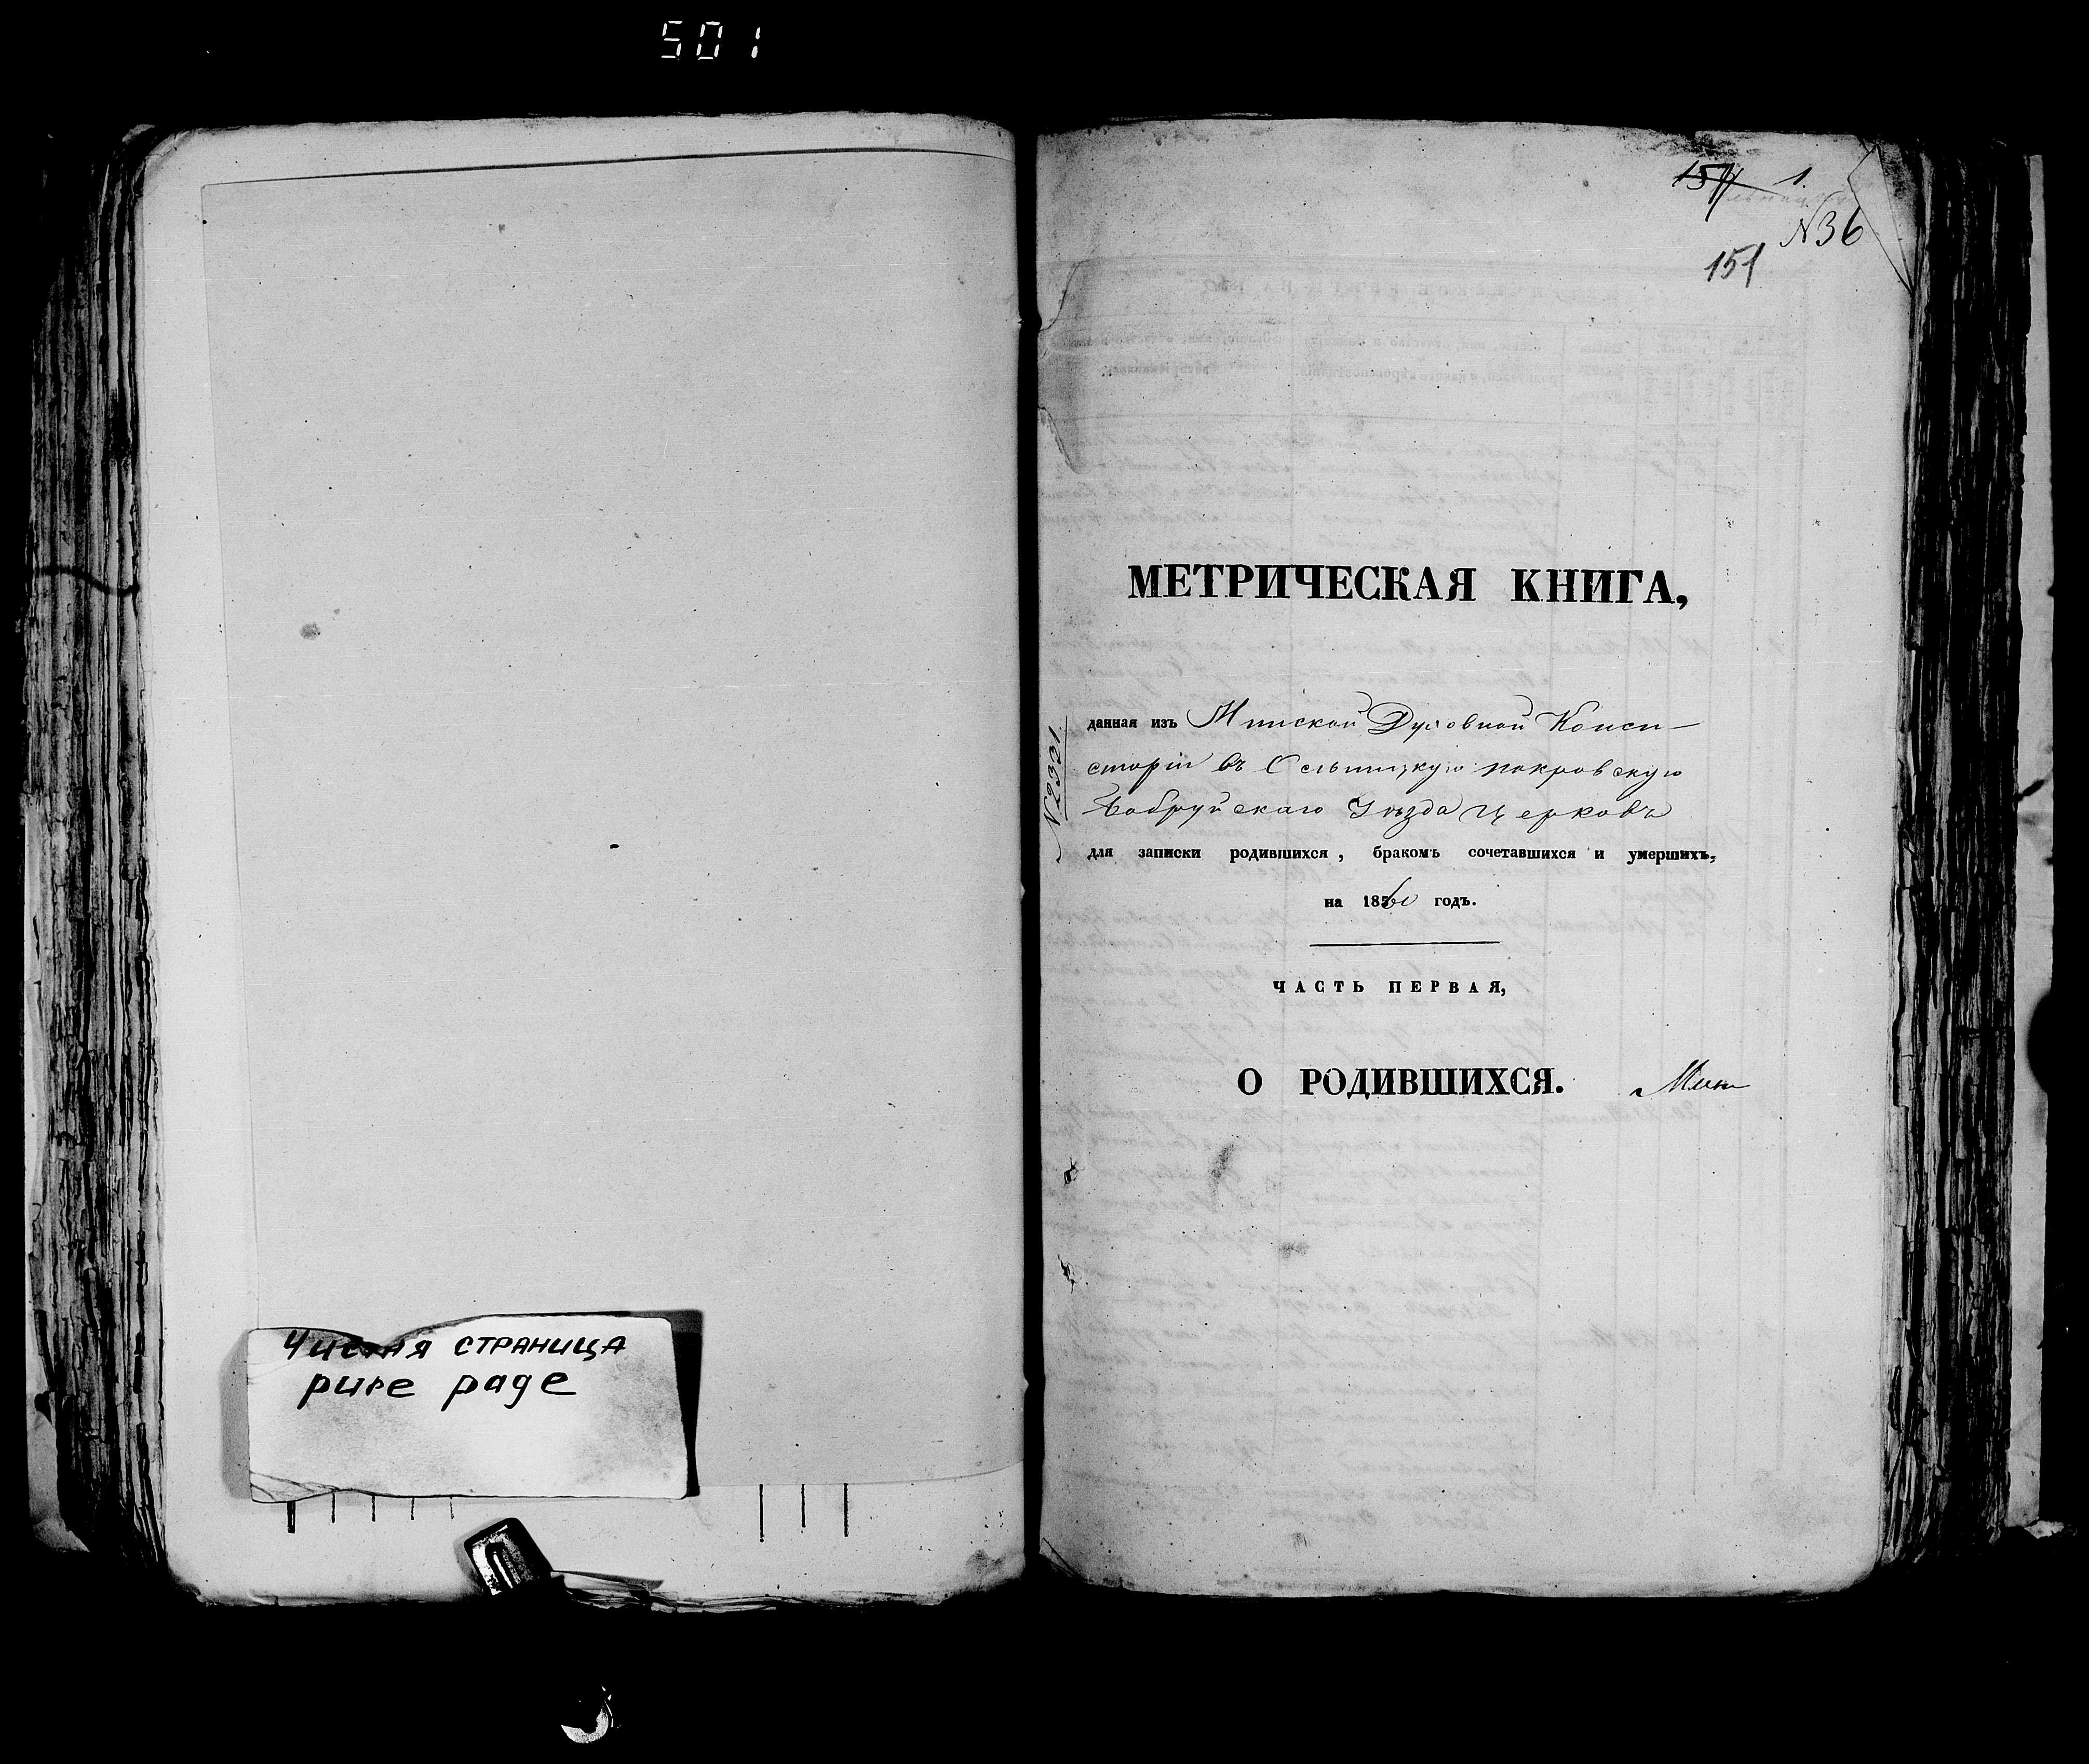 501
Чистая страница
pure page
1.
N36
151
МЕТРИЧЕСКАЯ КНИГА,
N2331.
данная изъ Минской Духовной Конси-
сторіи въ покровскую
Бобруйскаго Уѣзда Церковь
для записки родившихся, бракомъ сочетавшихся и умершихъ,
на 185 годъ.
ЧАСТЬ ПЕРВАЯ,
О РОДИВШИХСЯ.